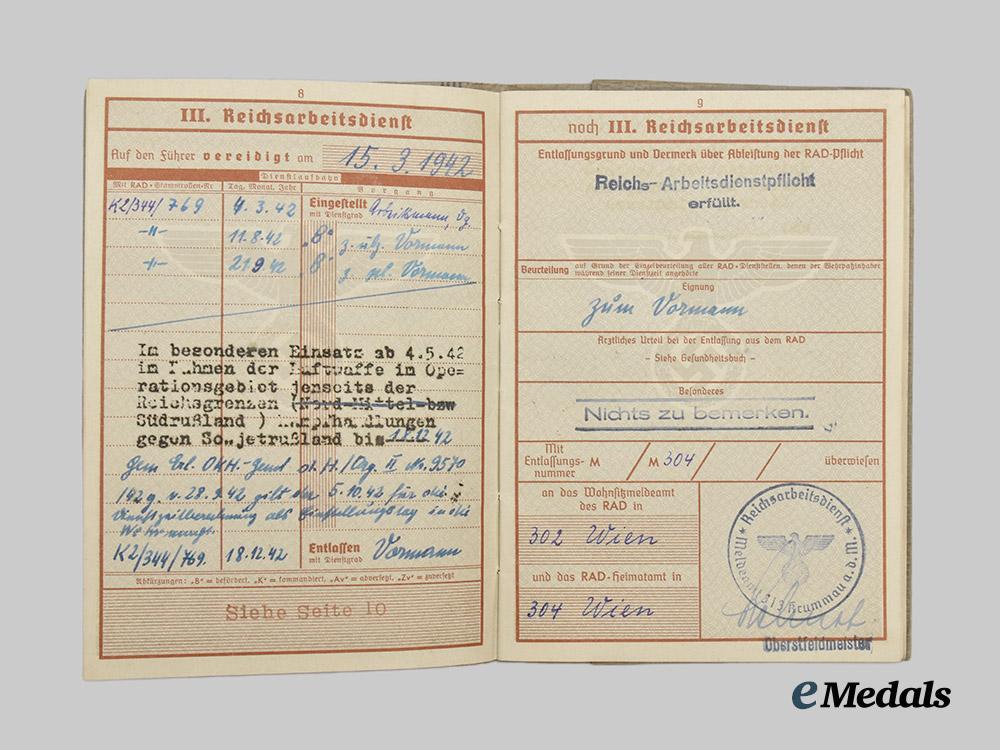 8
III. Reichsarbeitsdienst
Auf den Führer vereidigt am 15. 3. 1942
Dienstlaufbahn
Mit RAD-Stammrollen-Nr Tag, Monat, Jahr Vorgang
K2/344/769 4.3.42 Eingestellt mit Dienstgrad
-"- 11.8.42 "B" z. Vormann
-"- 21.9.42 "B" z. Vormann
Im besonderen Einsatz ab 4.5.42
im Rahmen der Luftwaffe in Ope=
rationsgebiet jenseits der
Reichsgrenzen (Nord-Mittel-bzw
Südrußland ) Kampfhandlungen
gegen Sowjetrußland bis 18.12.42
Gem Erl. OKH.-Gend H./Org. II No. 9570
/42 g. v. 28.9.42 gilt der 5.10.42 für die
Dienstzeitberechnung als Einstellungstag in die
Wehrmacht.
K2/344/769. 18.12.42 Entlassen mit Dienstgrad Vormann
Abkürzungen: „B“ = befördert, „K“ = kommandiert, „Av“ = abversetzt, „Zv“ = zuversetzt
Siehe Seite 10
9
noch III. Reichsarbeitsdienst
Entlassungsgrund und Vermerk über Ableistung der RAD-Pflicht
Reichs-Arbeitsdienstpflicht
erfüllt.
Beurteilung auf Grund der Einzelbeurteilung aller RAD-Dienststellen, denen der Wehrpaßinhaber
während seiner Dienstzeit angehörte
Eignung
zum Vormann
Ärztliches Urteil bei der Entlassung aus dem RAD
– Siehe Gesundheitsbuch –
Besonderes
Nichts zu bemerken.
Mit
Entlassungs- M / M 304 / / überwiesen
nummer
an das Wohnsitzmeldeamt
des RAD in
302 Wien
und das RAD-Heimatamt in
304 Wien
Reichsarbeitsdienst
Meldeamt 313 Krummau a.d.M.
Oberstfeldmeister
eMedals